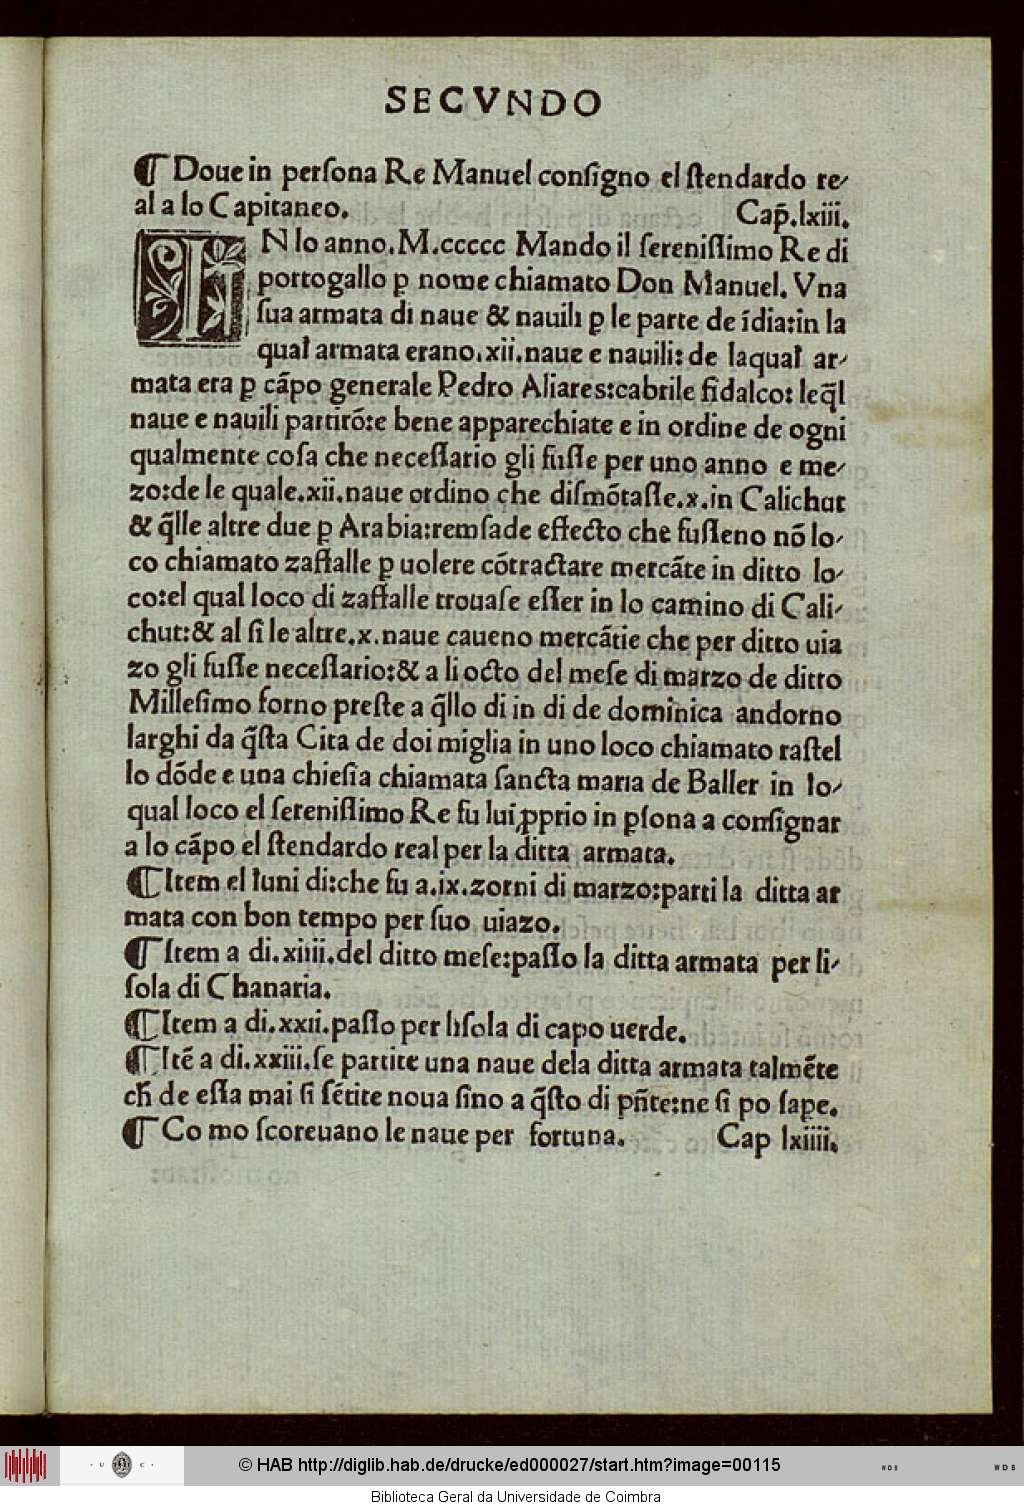 SECVNDO
¶ Doue in perſona Re Manuel conſigno el ſtendardo re-
al a lo Capitaneo. Cap̃.lxiii.
IN lo anno.M.ccccc Mando il ſereniſſimo Re di
portogallo ꝑ nome chiamato Don Manuel. Vna
ſua armata di naue & nauili ꝑ le parte de ĩdia:in la
qual armata erano.xii.naue e nauili: de laqual ar-
mata era ꝑ cãpo generale Pedro Aliares:cabrile fidalco: leq̃l
naue e nauili partirõ:e bene apparechiate e in ordine de ogni
qualmente coſa che neceſſario gli fuſſe per uno anno e me-
zo:de le quale.xii.naue ordino che diſmõtaſſe.x.in Calichut
& q̃lle altre due ꝑ Arabia:remſade effecto che fuſſeno nõ lo-
co chiamato zaffalle ꝑ uolere cõtractare mercãte in ditto lo-
co:el qual loco di zaffalle trouaſe eſſer in lo camino di Cali-
chut:& al ſi le altre.x.naue caueno mercãtie che per ditto uia
zo gli fuſſe neceſſario:& a li octo del meſe di marzo de ditto
Milleſimo forno preſte a q̃llo di in di de dominica andorno
larghi da q̃ſta Cita de doi miglia in uno loco chiamato raſtel
lo dõde e una chieſia chiamata ſancta maria de Baller in lo-
qual loco el ſereniſſimo Re fu lui ꝓprio in ꝑſona a conſignar
a lo cãpo el ſtendardo real per la ditta armata.
¶ Item el luni di:che fu a.ix.zorni di marzo:parti la ditta ar
mata con bon tempo per ſuo uiazo.
¶ Item a di.xiiii.del ditto meſe:paſſo la ditta armata per li-
ſola di Chanaria.
¶ Item a di.xxii.paſſo per liſola di capo uerde.
¶ Itẽ a di.xxiii.ſe partite una naue dela ditta armata talmẽte
ch̃ de eſſa mai ſi ſẽtite noua ſino a q̃ſto di pñte:ne ſi po ſape.
¶ Co mo ſcoreuano le naue per fortuna. Cap lxiiii.
· U C ·
© HAB http://diglib.hab.de/drucke/ed000027/start.htm?image=00115
WDB
WDB
Biblioteca Geral da Universidade de Coimbra